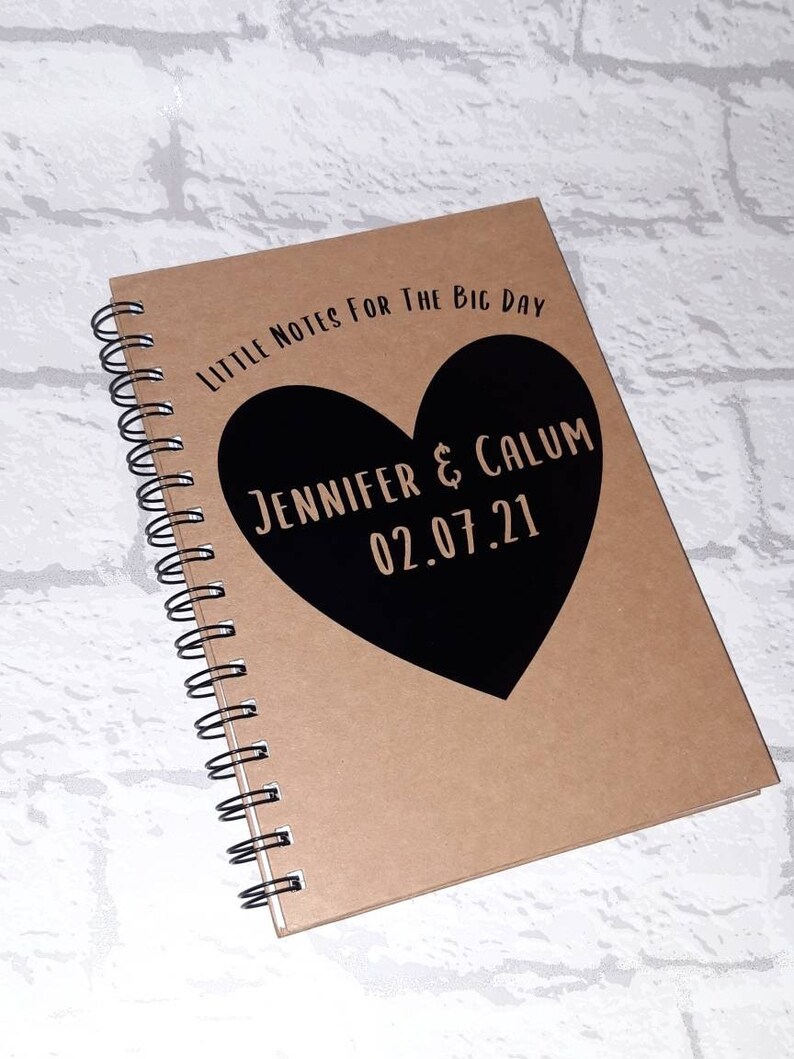 Little Notes For The Big Day
Jennifer & Calum
02.07.21